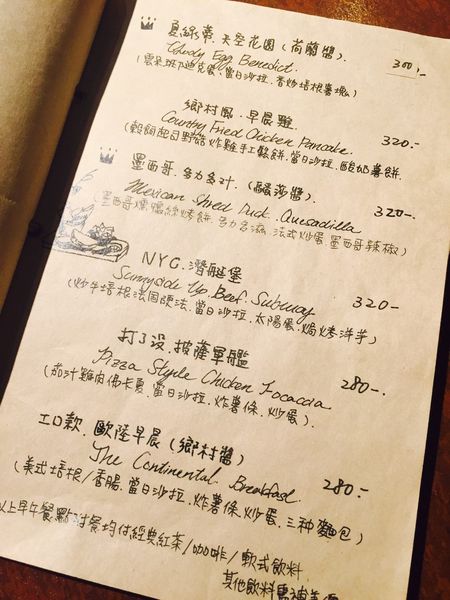 夏綠蒂.天空花園(荷蘭醬).
Cloudy Egg Benedict.
300.-
(雲朵班迪克蛋.當日沙拉.香炒培根薯塊)
鄉村風.早晨雞
Country Fried Chicken Pancake.
320.-
(穀飼起司野菇炸雞手工鬆餅.當日沙拉.酸奶薯餅.
墨西哥.多力多汁.(醺莎醬).
Mexican Shred Duck. Quesadilla
320-
墨西哥燻鴨絲烤餅.多力多滋.法式炒蛋.墨西哥辣椒)
NYC.潛艇堡
Sunnyside Up Beef. Subway
320-
(炒牛培根法国硬法.當日沙拉.太陽蛋.焗烤洋芋)
打了没.披薩軍艦
Pizza Style Chicken Focaccia
280-.
(茄汁雞肉佛卡夏.當日沙拉.炸薯條.炒蛋).
工口款.歐陸早晨(鄉村醬)
The Continental. Breakfast.
280.-
(美式培根/香腸.當日沙拉.炸薯條.炒蛋.三种麵包)
以上早午餐點 餐均付經典紅茶/咖啡/軟式飲料.
其他飲料需補差